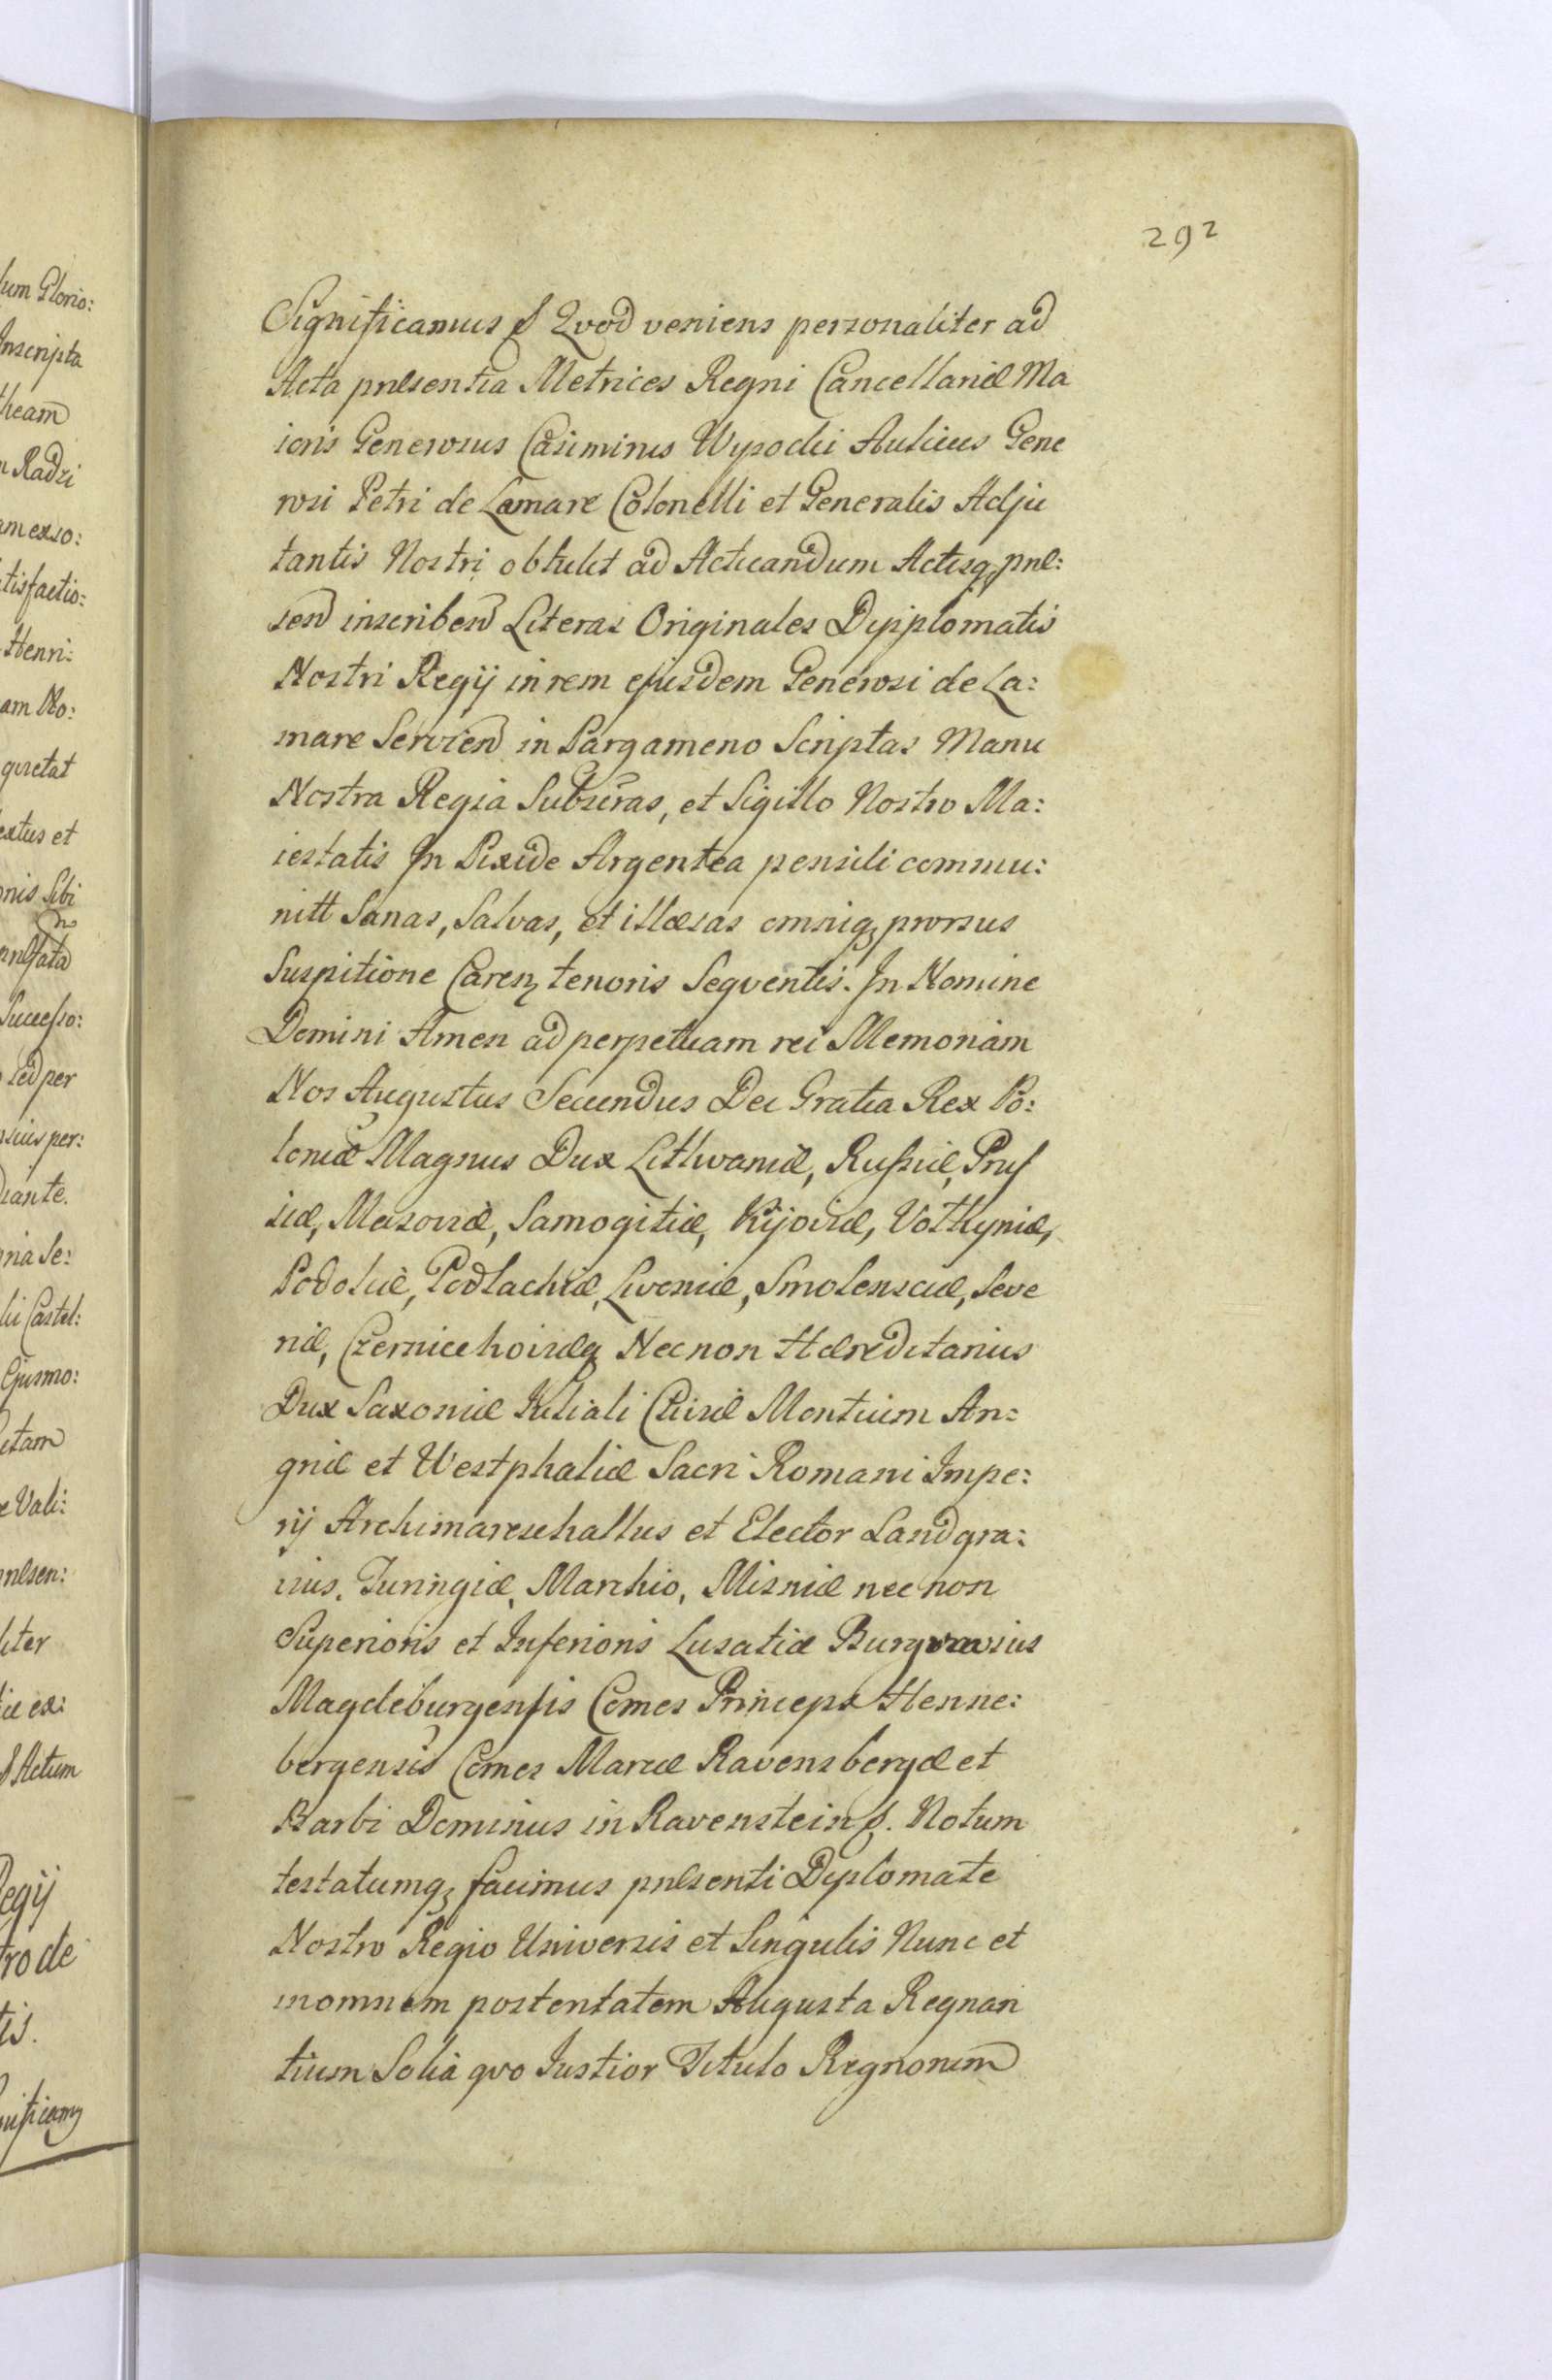 292
Significamus Quod veniens personaliter ad
Acta pnlsentia Metrices Regni Cancellariæ Ma
ioris Generosus Casimirus Wysocki Aulicus Gene
rosi Petri de Lamare Colonelli et Generalis Adju
tantis Nostri obtulit ad Acticandum Actisq pnl:
send inscribend Literas Originales Dypplomatis
Nostri Regij in rem ejusdem Generosi de La:
mare Serviend in Pargameno Scriptas Manu
Nostra Regia Subscras, et Sigillo Nostro Ma:
iestatis In Pixide Argentea pensili commu:
nitt Sanas, Salvas, et illæsas omniq prorsus
Suspitione Caren tenoris Seqventis. In Nomine
Domini Amen ad perpetuam rei Memoriam
Nos Augustus Secundus Dei Gratia Rex Po:
loniæ Magnus Dux Lithvaniæ, Russiæ, Prus
siæ, Masoviæ, Samogitiæ, Kijoviæ, Volhyniæ,
Podoliæ, Podlachiæ, Livoniæ, Smolensciæ, Seve
riæ, Czerniechoviæq Necnon Hæreditarius
Dux Saxoniæ Juliali Cliviæ Montium An:
griæ et Westphaliæ Sacri Romani Impe:
rij Archimareschallus et Elector Landgra:
vius. Turingiæ, Marchio, Misniæ nec non
Superioris et Inferioris Lusatiæ
Magdeburgensis Comes Princeps Henne:
bergensis Comes Marcæ Ravensbergæ et
Barbi Dominus in Ravenstein. Notum
testatumq facimus pnlsenti Dyplomate
Nostro Regio Universis et Singulis Nunc et
inomnem posteritatem Augusta Regnan
tium Solia qvo Iustior Titulo Regnorum
lum Glorio:
Inscripta
n Radzi
tisfactio:
Henri:
am No:
quietat
extus et
onis Sibi
Successo:
sed per
diante.
ria Se:
lii Castel:
Ejusmo:
e Vali:
nlsen:
liter
Actum
Regij
tro de
tis.